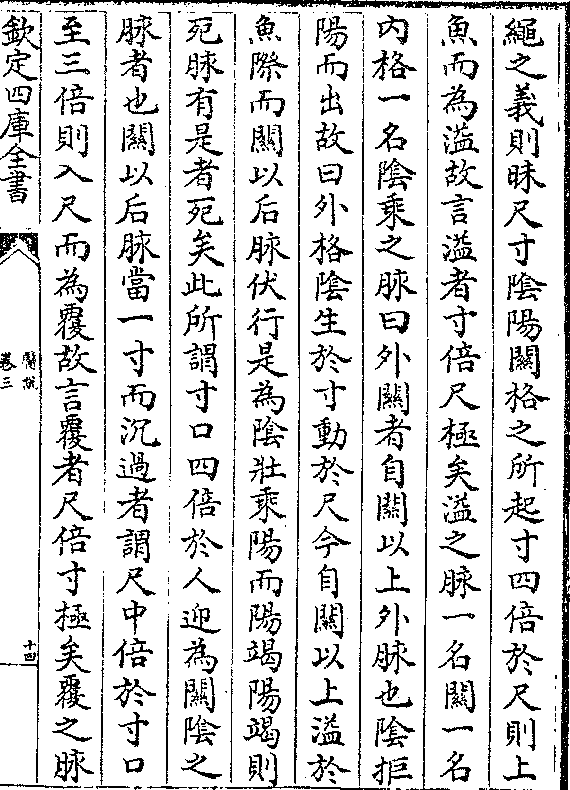 繩之義則昧尺寸陰陽關格之所起寸四倍於尺則上
魚而為溢故言溢者寸倍尺極矣溢之脉一名關一名
内格一名陰乘之脉曰外關者自關以上外脉也陰拒
陽而出故曰外格陰生於寸動於尺今自關以上溢於
魚際而關以后脉伏行是為陰壯乘陽而陽竭陽竭則
死脉有是者死矣此所謂寸口四倍於人迎為關陰之
脉者也關以后脉當一寸而沉過者謂尺中倍於寸口
至三倍則入尺而為覆故言覆者尺倍寸極矣覆之脉
欽定四庫全書
醫說
卷三
十四